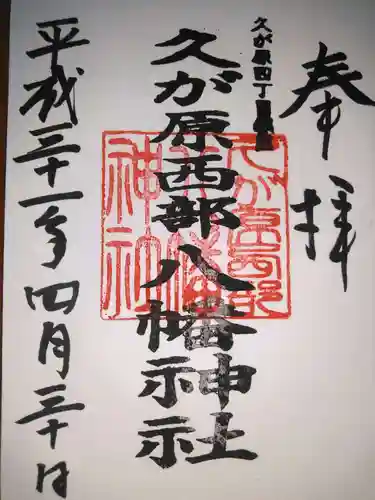 奉拝
久が原四丁目
久が原西部八幡神社
久が原西部八幡神社
平成三十一年四月三十日